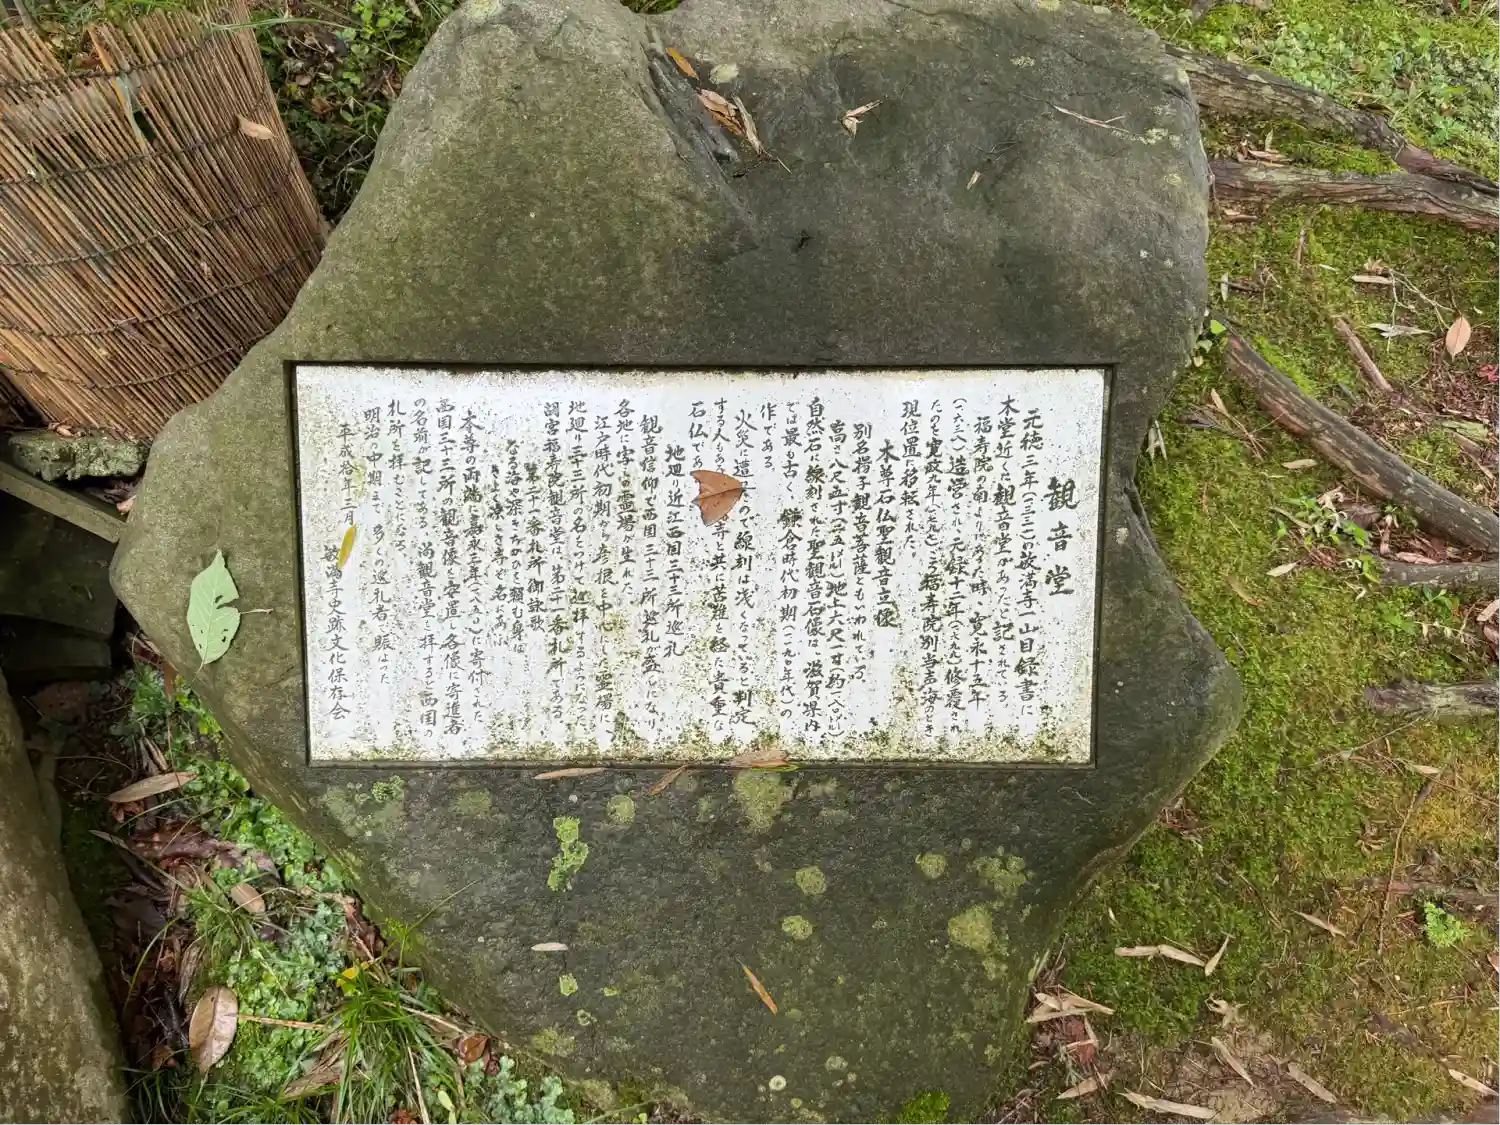 観音堂
元徳三年(一三三一)の敏満寺一山目録書に
本堂近くに観音堂があったと記されている
福寿院の南よりにあった時 寛永十五年
(一六三八)造営され 元禄十二年(一六九九)修覆され
たのを寛政九年(一七九七)ごろ福寿院別当
現位置に移転された。
本尊石仏聖観音立像
別名楷子観音菩薩ともいわれている。
高さ八尺五寸 地上六尺一寸
自然石に線刻された聖観音石像は 滋賀県内
では最も古く、鎌倉時代初期(一一九〇年代)の
作である。
火災に遭 ので線刻は浅くなっていると判定
する人もあ 寺と共に苦難に怒た貴重な
石仏であ
地廻り近江西国三十三所巡礼
観音信仰で西国三十三所巡礼が盛んになり
各地に写しの霊場が生れた。
江戸時代初期から彦根を中心にした霊場に、
地廻り三十三所の名をつけて巡拝するようになった。
胡宮福寿院観音堂は、第二十一番札所である。
第二十一番札所御詠歌
なる海や深きちかひを頼む身は
寺ぞ名にあふ
本尊の両端に嘉永 年 に寄付された
西国三十三所の観音像を安置し各像に寄進者
の名前が記してある 尚観音堂を拝すると西国の
札所を拝むことになる。
明治の中期まで 多くの巡礼者で賑はった
平成拾年三月
敏満寺史跡文化保存会